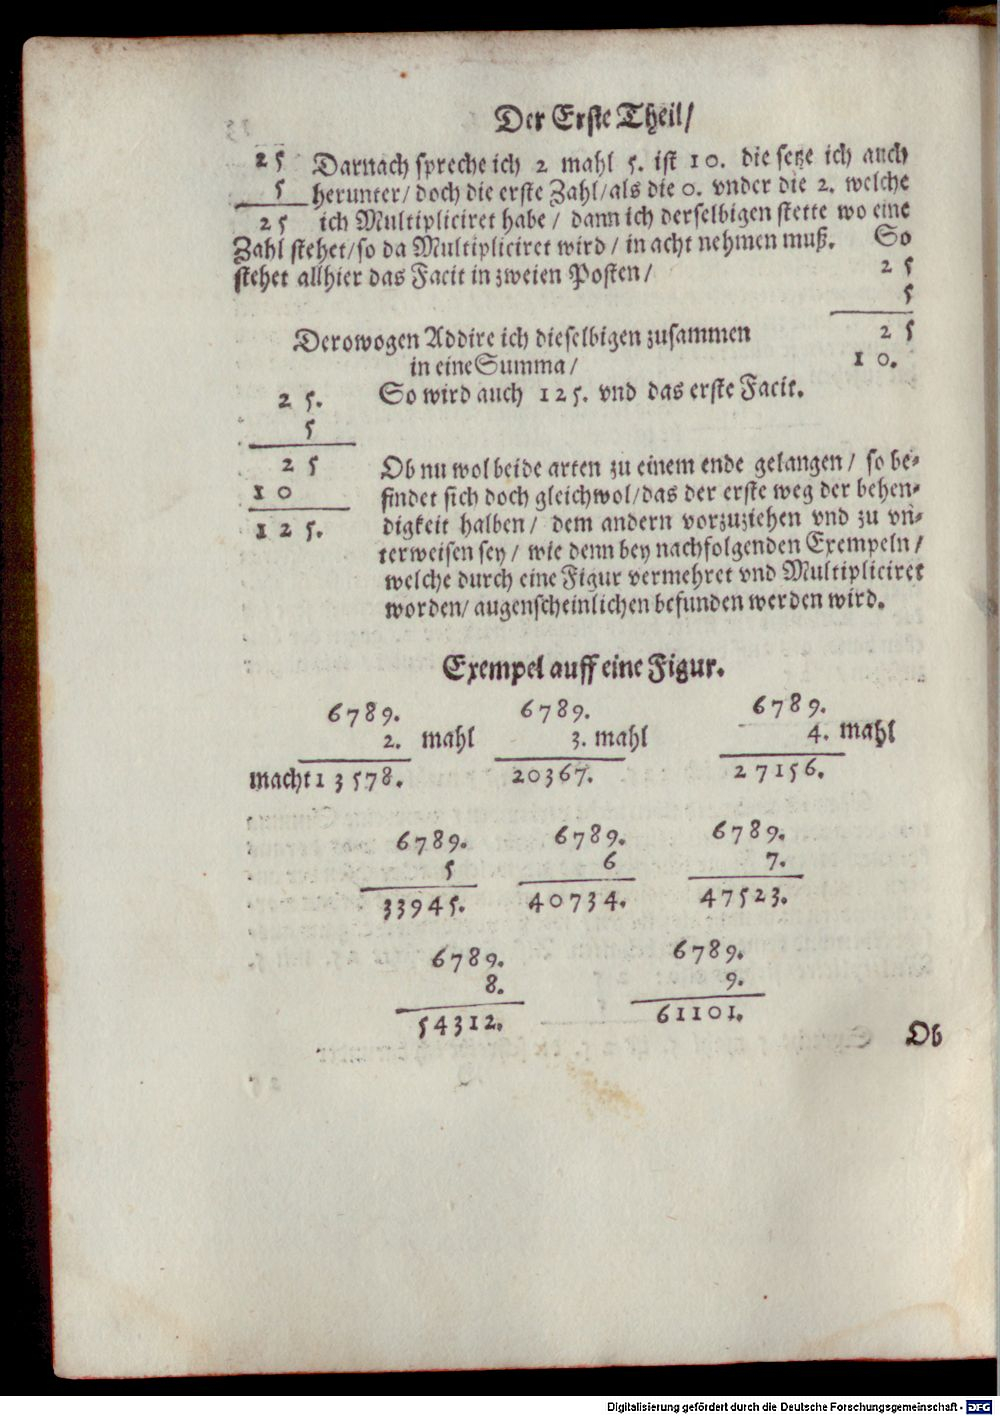 Der Erste Theil/
25 Darnach spreche ich 2 mahl 5. ist 10. die setze ich auch
5 herunter/ doch die erste Zahl/ als die 0. vnder die 2. welche
25 ich Multipliciret habe/ dann ich derselbigen stette wo eine
Zahl stehet/ so da Multipliciret wird/ in acht nehmen muß. So
stehet allhier das Facit in zweien Posten/
25
5
25
10.
Derowogen Addire ich dieselbigen zusammen
in eine Summa/
So wird auch 125. vnd das erste Facit.
25.
5
25
10
125.
Ob nu wol beide arten zu einem ende gelangen/ so be-
findet sich doch gleichwol/ das der erste weg der behen-
digkeit halben/ dem andern vorzuziehen vnd zu vn-
terweisen sey/ wie denn bey nachfolgenden Exempeln/
welche durch eine Figur vermehret vnd Multipliciret
worden/ augenscheinlichen befunden werden wird.
Exempel auff eine Figur.
6789. 6789. 6789.
2. mahl 3. mahl 4. mahl
macht 13578. 20367. 27156.
6789. 6789. 6789.
5 6 7.
33945. 40734. 47523.
6789. 6789.
8. 9.
54312. 61101.
Ob
Digitalisierung gefördert durch die Deutsche Forschungsgemeinschaft - DFG